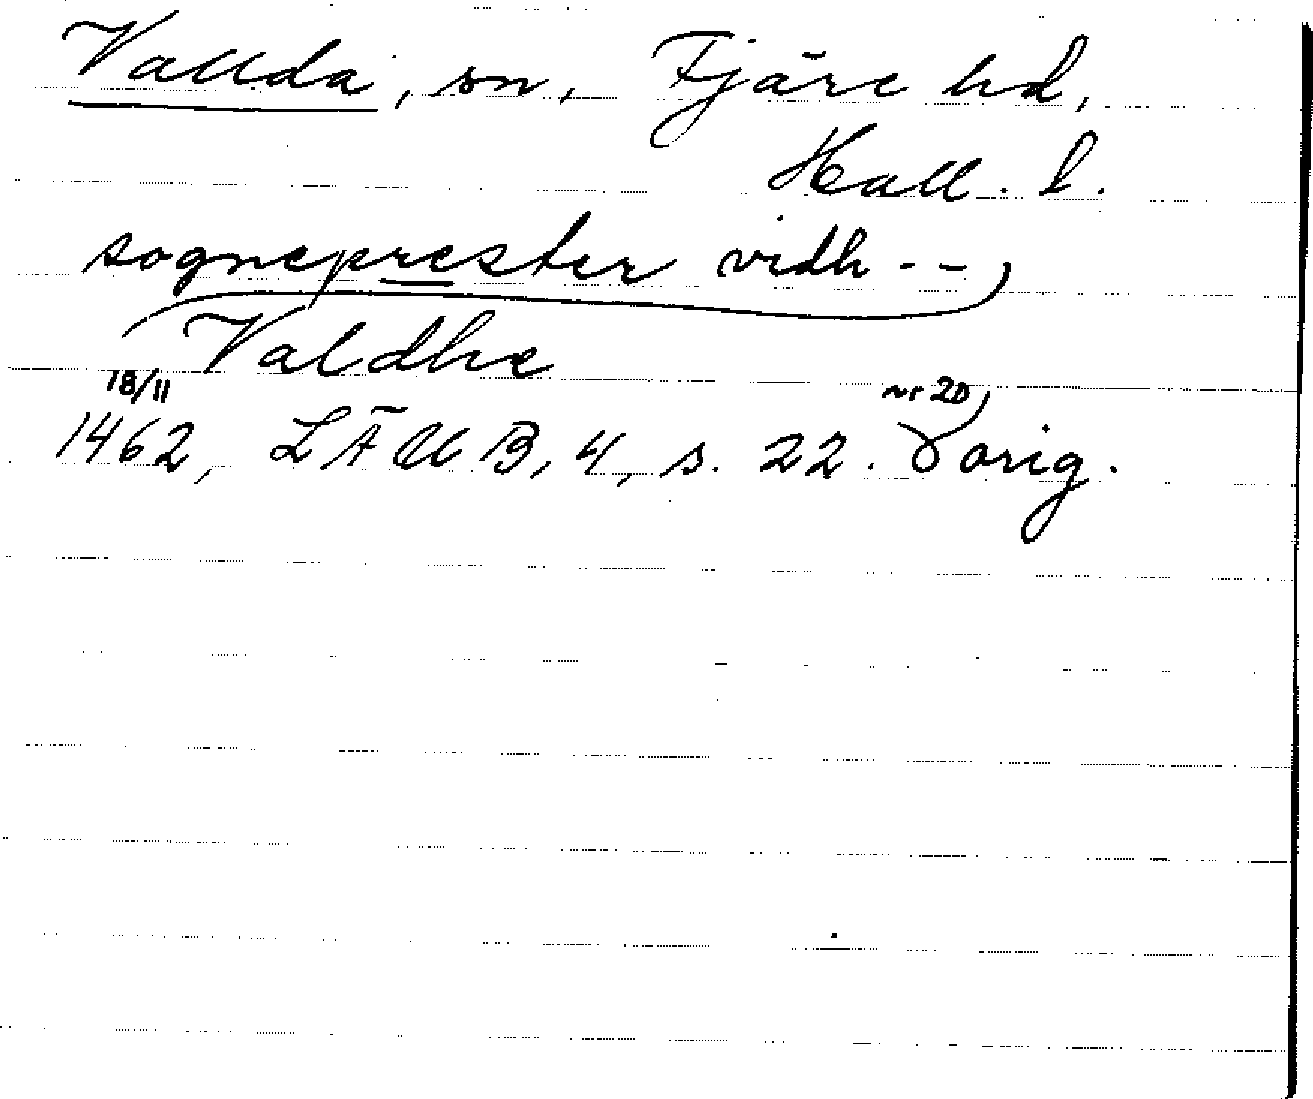 Vallda, sn, Fjäre hd,
Hall. l.
sogneprester vidh - -
Valdhe
18/11 nr 20
1462, LÄUB, 4, s. 22. orig.